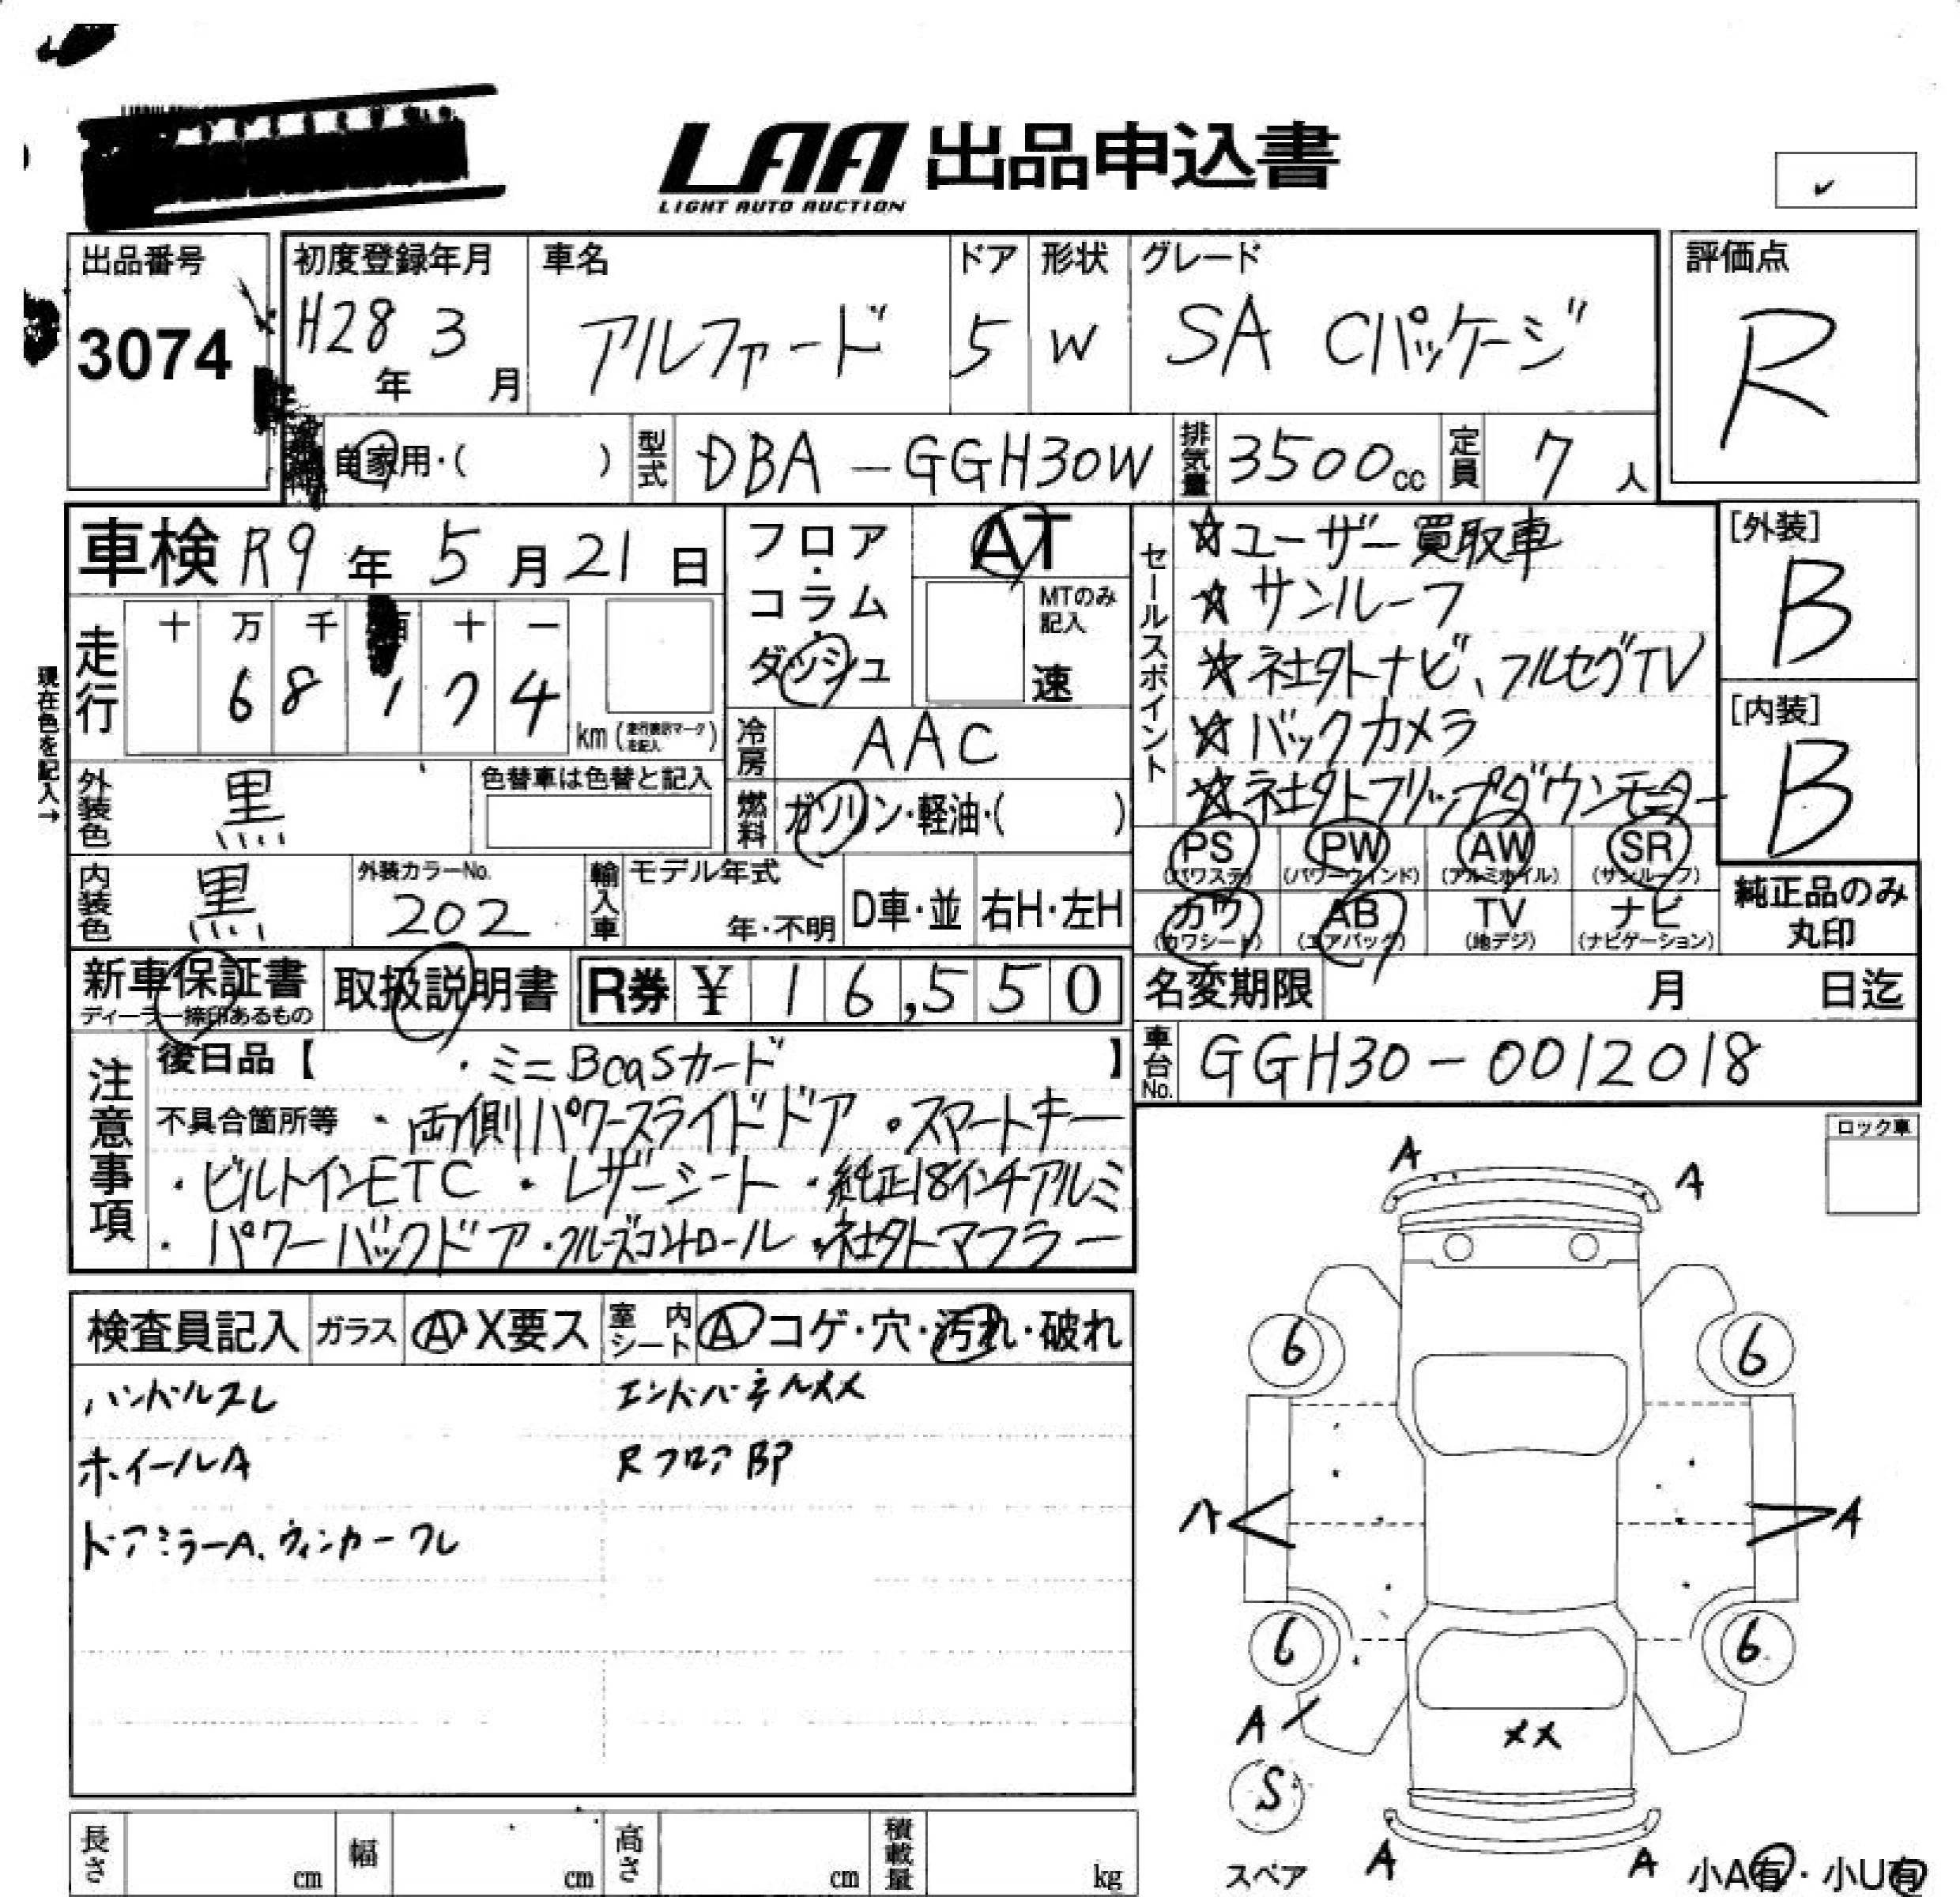 LAA 出品申込書
LIGHT AUTO AUCTION
✓
出品番号
3074
初度登録年月
H28年 3月
車名
アルファード
ドア
5
形状
W
グレード
SA Cパッケージ
評価点
R
自家用・( )
型式
DBA-GGH30W
排気量
3500cc
定員
7人
車検 R9年 5月 21日
フロア・コラム・ダッシュ
AT
MTのみ記入
速
セールスポイント
☆ユーザー買取車
☆サンルーフ
☆社外ナビ、フルセグTV
☆バックカメラ
☆社外フリップダウンモニター
[外装]
B
[内装]
B
現在色を記入→
走行
十 万 千 百 十 一
6 8 1 7 4
km
冷房
AAC
外装色
黒
色替車は色替と記入
燃料
ガソリン・軽油・( )
PS (パワステ)
PW (パワーウィンド)
AW (アルミホイル)
SR (サンルーフ)
内装色
黒
外装カラーNo.
202
輸入車
モデル年式
年・不明
D車・並
右H・左H
カワ (カワシート)
AB (エアバック)
TV (地デジ)
ナビ (ナビゲーション)
純正品のみ丸印
新車保証書
ディーラー捺印あるもの
取扱説明書
R券 ¥ 16,550
名変期限 月 日迄
車台No.
GGH30-0012018
注意事項
後日品【 ・ミニBcasカード 】
不具合箇所等 ・両側パワースライドドア ・スマートキー
・ビルトインETC ・レザーシート ・純正18インチアルミ
・パワーバックドア ・クルーズコントロール ・社外マフラー
ロック車
検査員記入
ガラス
A・X要ス
室内シート
A コゲ・穴・汚れ・破れ
ハンドルスレ
エンドパネルXX
ホイールA
RフロアBP
ドアミラーA、ウィンカーワレ
A
A
6
6
A
A
6
6
A
XX
S
スペア
A
A
小A有・小U有
長さ cm
幅 cm
高さ cm
積載量 kg